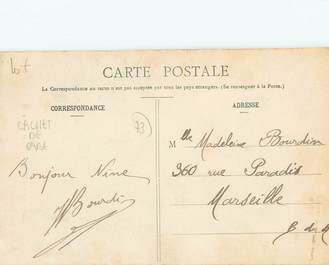 Lot
CARTE POSTALE
La Correspondance au verso n'est pas acceptée par tous les pays étrangers. (Se renseigner à la Poste.)
CORRESPONDANCE
ADRESSE
CACHET
DE
93
Bonjour Nine
Bourdin
Mlle Madeleine Bourdin
360 rue Paradis
Marseille
B du